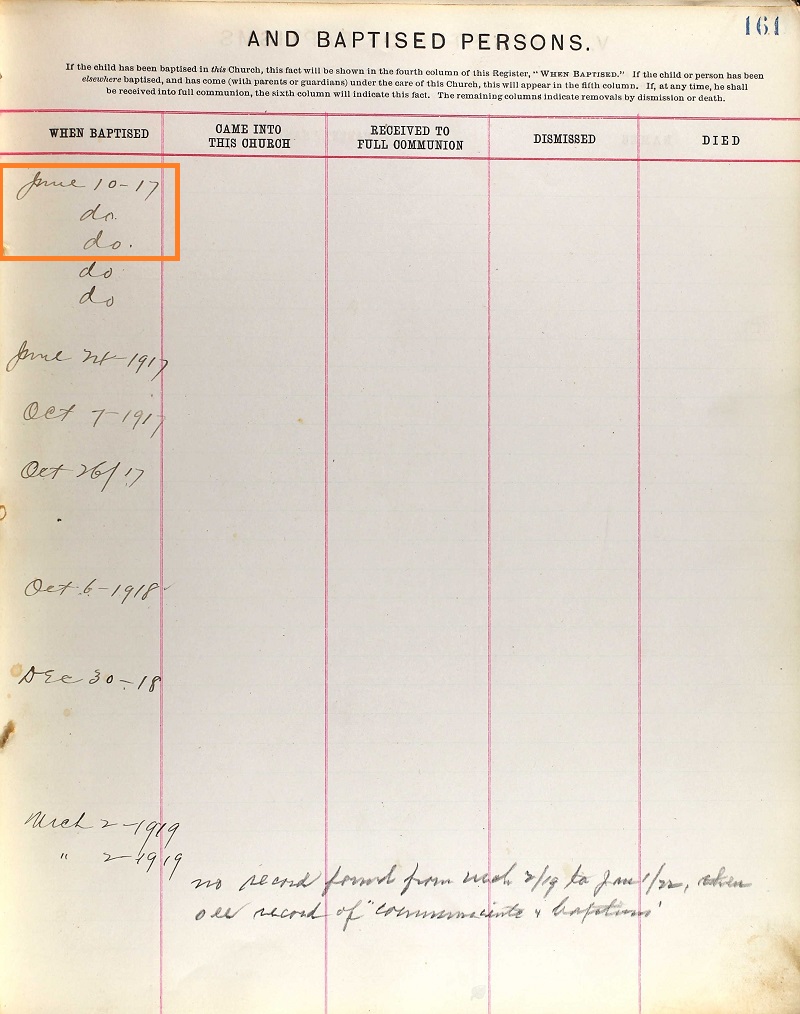 161
AND BAPTISED PERSONS.
If the child has been baptised in this Church, this fact will be shown in the fourth column of this Register, "WHEN BAPTISED." If the child or person has been
elsewhere baptised, and has come (with parents or guardians) under the care of this Church, this will appear in the fifth column. If, at any time, he shall
be received into full communion, the sixth column will indicate this fact. The remaining columns indicate removals by dismission or death.
WHEN BAPTISED CAME INTO THIS CHURCH RECEIVED TO FULL COMMUNION DISMISSED DIED
June 10-17
do.
do.
do
do
June 24-1917
Oct 7-1917
Oct 26/17
Oct 6-1918
Dec 30-18
Mrch 2-1919
" 2-1919
no record found from Mch 2/19 to Jan 1/22, when
see record of "communicants & baptisms"